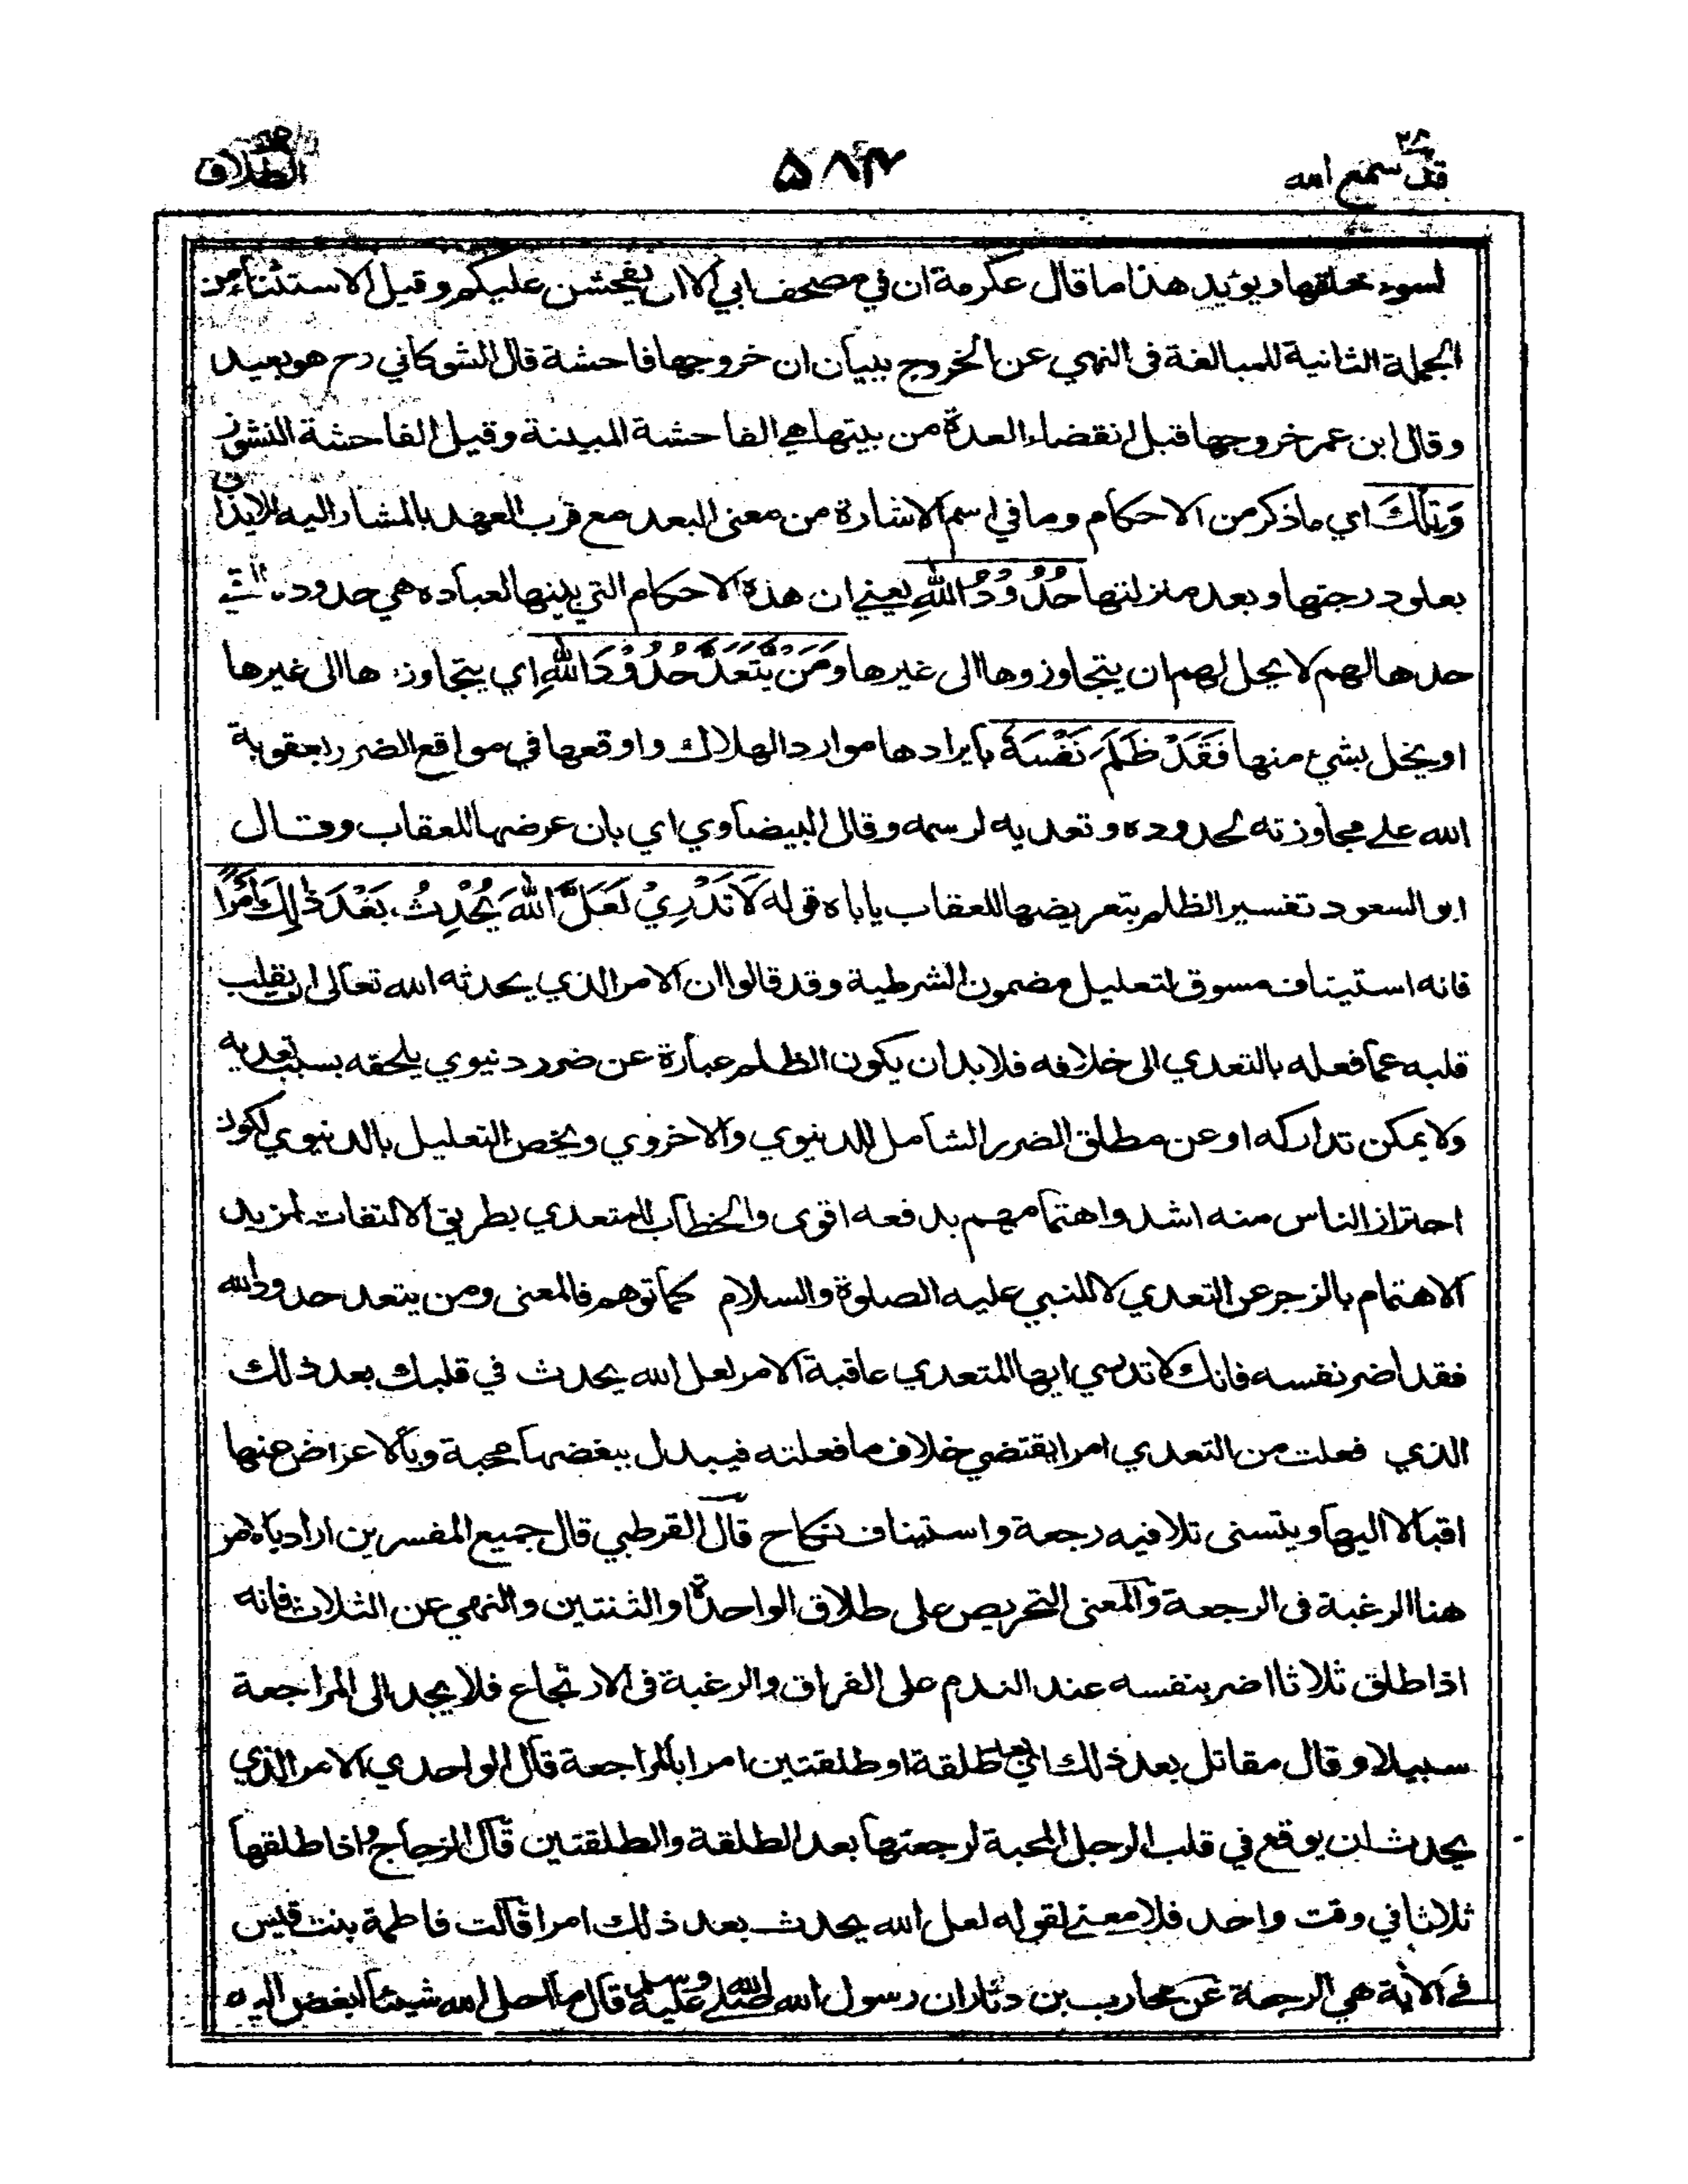 قد سمع الله ٢٨
٥٨٤
الطلاق
لسوء خلقها ويؤيد هذا ما قال عكرمة ان في مصحف ابي الا ان يفحشن عليكم وقيل الاستثناء من
الجملة الثانية للمبالغة فى النهي عن الخروج ببيان ان خروجها فاحشة قال الشوكاني رح هو بعيد
وقال ابن عمر خروجها قبل انقضاء العدة من بيتها هي الفاحشة المبينة وقيل الفاحشة النشوز
وَتِلْكَ اي ما ذكر من الاحكام وما في اسم الاشارة من معنى البعد مع قرب العهد بالمشار اليه للايذان
بعلو درجتها وبعد منزلتها حُدُوْدُ اللّٰهِ يعني ان هذه الاحكام التي بينها لعباده هي حدوده التي
حدها لهم لا يحل لهم ان يتجاوزوها الى غيرها وَمَنْ يَّتَعَدَّ حُدُوْدَ اللّٰهِ اي يتجاوزها الى غيرها
او يخل بشيء منها فَقَدْ ظَلَمَ نَفْسَهٗ بايرادها موارد الهلاك واوقعها في مواقع الضرر لعقوبة
الله على مجاوزته لحدوده وتعديه لرسمه وقال البيضاوي اي بان عرضها للعقاب وقال
ابو السعود تفسير الظلم بتعريضها للعقاب ياباه قوله لَا تَدْرِيْ لَعَلَّ اللّٰهَ يُحْدِثُ بَعْدَ ذٰلِكَ اَمْرًا
فانه استيناف مسوق لتعليل مضمون الشرطية وقد قالوا ان الامر الذي يحدثه الله تعالى ان يقلب
قلبه عما فعله بالتعدي الى خلافه فلا بد ان يكون الظلم عبارة عن ضرر دنيوي يلحقه بسبب تعديه
ولا يمكن تداركه او عن مطلق الضرر الشامل للدنيوي والاخروي ويخص التعليل بالدنيوي لكون
احتراز الناس منه اشد واهتمامهم بدفعه اقوى والخطاب للمتعدي بطريق الالتفات لمزيد
الاهتمام بالزجر عن التعدي لا للنبي عليه الصلوة والسلام كما توهم فالمعنى ومن يتعد حدود الله
فقد اضر نفسه فانك لا تدري ايها المتعدي عاقبة الامر لعل الله يحدث في قلبك بعد ذلك
الذي فعلت من التعدي امرا يقتضي خلاف ما فعلته فيبدل ببغضها محبة وبالاعراض عنها
اقبالا اليها ويتسنى تلافيه رجعة واستيناف نكاح قال القرطبي قال جميع المفسرين اراد بالامر
هنا الرغبة فى الرجعة والمعنى التحريص على طلاق الواحدة او الثنتين والنهي عن الثلاث فانه
اذا طلق ثلاثا اضر بنفسه عند الندم على الفراق والرغبة فى الارتجاع فلا يجد الى المراجعة
سبيلا وقال مقاتل بعد ذلك اي بعد طلقة او طلقتين امرا بالمراجعة قال الواحدي الامر الذي
يحدث ان يوقع في قلب الرجل المحبة لرجعتها بعد الطلقة والطلقتين قال الزجاج واذا طلقها
ثلاثا في وقت واحد فلا معنى لقوله لعل الله يحدث بعد ذلك امرا قالت فاطمة بنت قيس
في الآية هي الرجعة عن محارب بن دثار ان رسول الله صلى الله عليه وسلم قال ما احل الله شيئا ابغض اليه